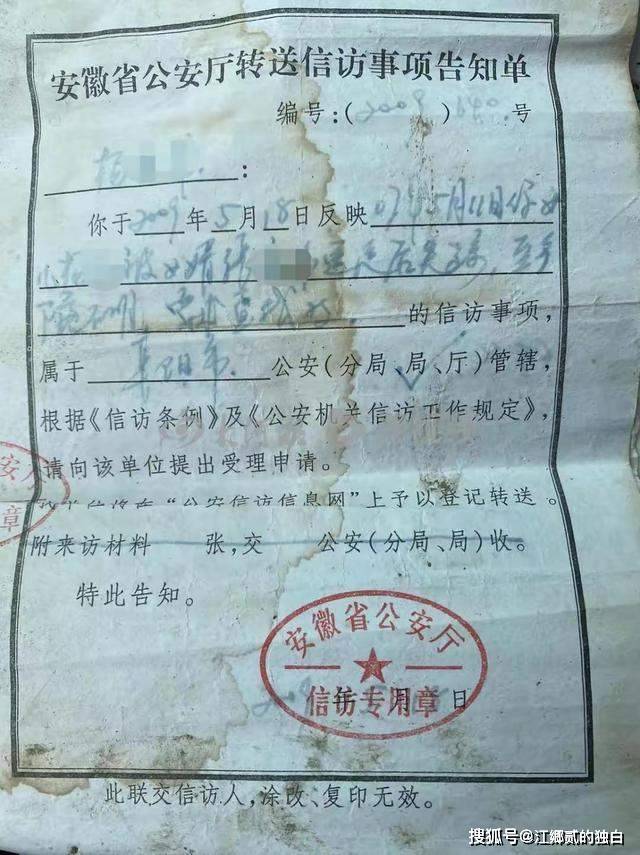 安徽省公安厅转送信访事项告知单
编号:(2009)640号
:
你于2009年5月18日反映07年5月11日你女
被女婿张
的信访事项,
属于阜阳市公安(分局、局、厅)管辖,
根据《信访条例》及《公安机关信访工作规定》,
请向该单位提出受理申请。
“公安信访信息网”上予以登记转送。
附来访材料 张,交 公安(分局、局)收。
特此告知。
安徽省公安厅
信访专用章
年 月 日
公安厅
章
此联交信访人,涂改、复印无效。
搜狐号@江鄉贰的独白